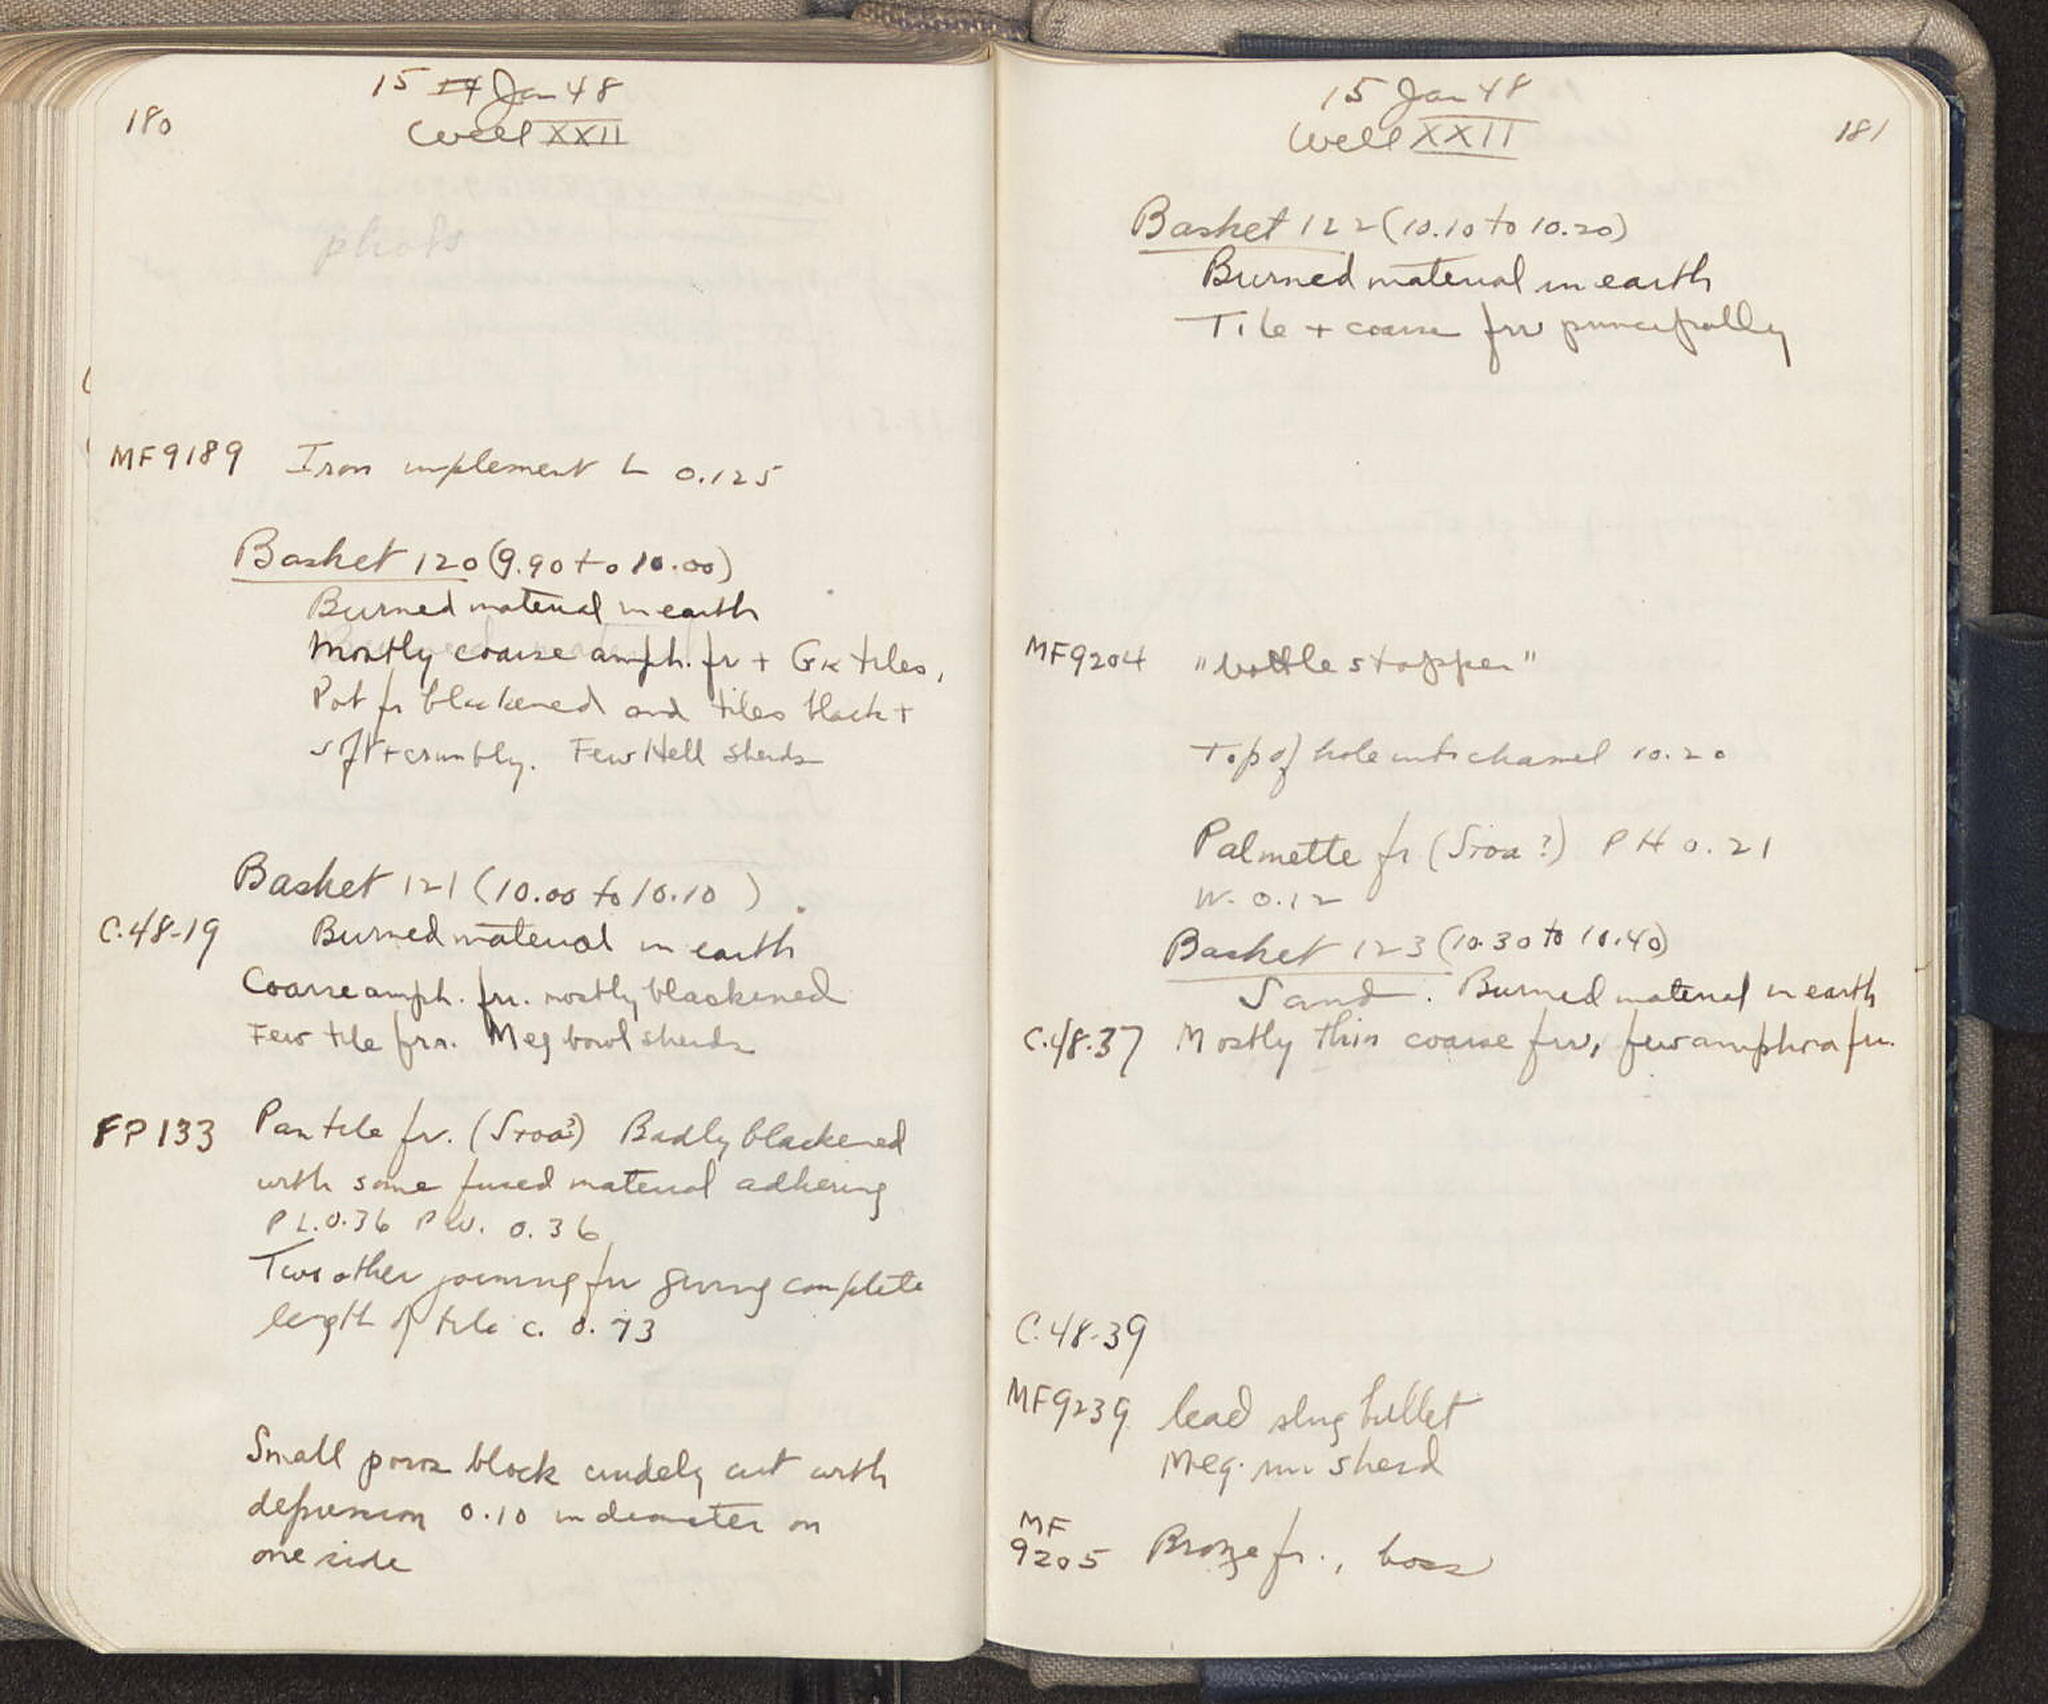 180
15 14 Jan 48
Well XXII
photo
MF9189 Iron implement L 0.125
Basket 120 (9.90 to 10.00)
Burned material in earth
Mostly coarse amph. fr + Gk tiles,
Pot fr blackened and tiles black +
soft + crumbly. Few Hell sherds
Basket 121 (10.00 to 10.10)
C.48-19 Burned material in earth
Coarse amph. frr. mostly blackened
Few tile frr. Meg bowl sherds
FP133 Pan tile fr. (Stoa?) Badly blackened
with some fused material adhering
P L. 0.36 P W. 0.36
Two other joining frr giving complete
length of tile c. 0.73
Small poros block crudely cut with
depression 0.10 in diameter on
one side
15 Jan 48
Well XXII
181
Basket 122 (10.10 to 10.20)
Burned material in earth
Tile + coarse frr principally
MF9204 "bottle stopper"
Top of hole into channel 10.20
Palmette fr (Stoa?) P H 0.21
W. 0.12
Basket 123 (10.30 to 10.40)
Sand. Burned material in earth
C.48.37 Mostly thin coarse frr, few amphora frr.
C.48-39
MF9239 lead slug bullet
Meg. sherd
MF
9205 Bronze fr., boss